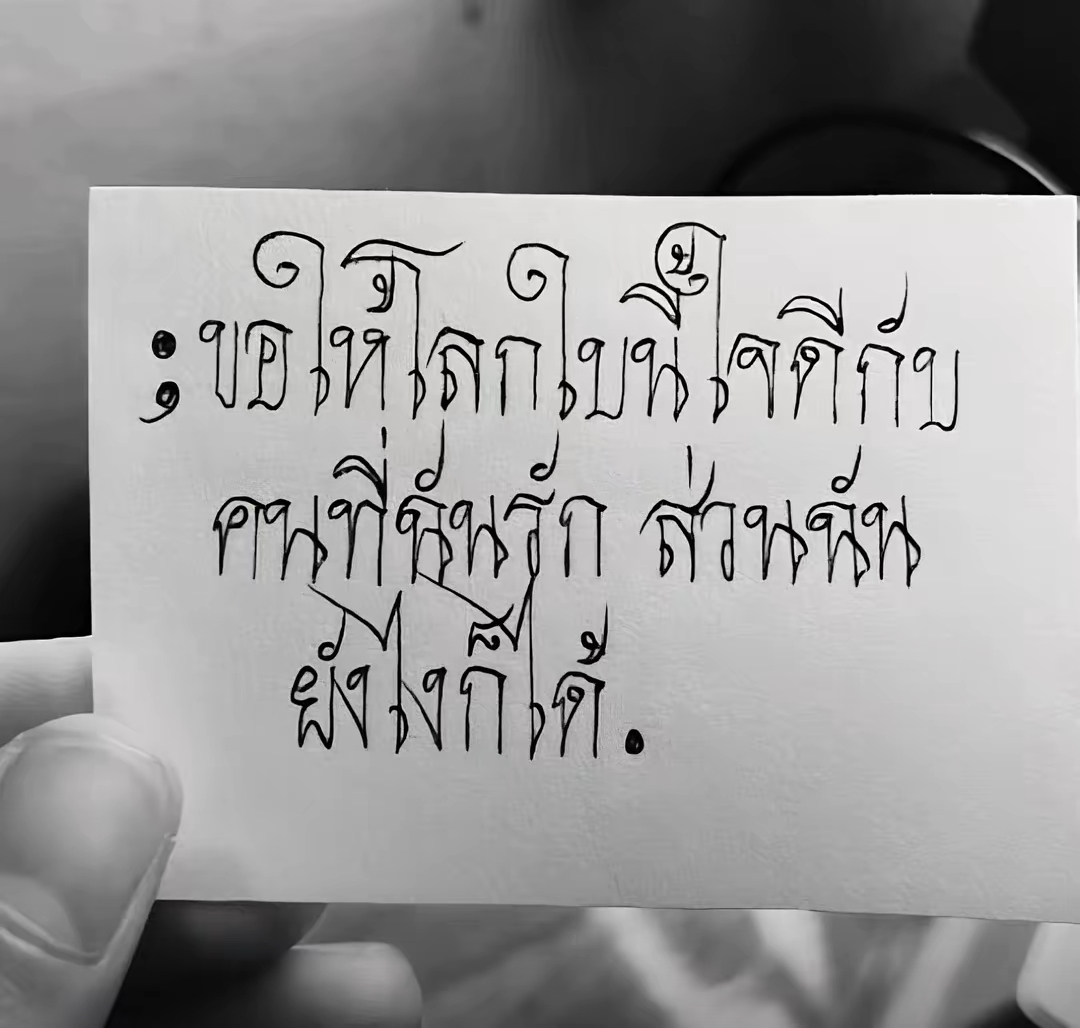 ;ขอให้โลกใบนี้ใจดีกับ
คนที่ฉันรัก ส่วนฉัน
ยังไงก็ได้.